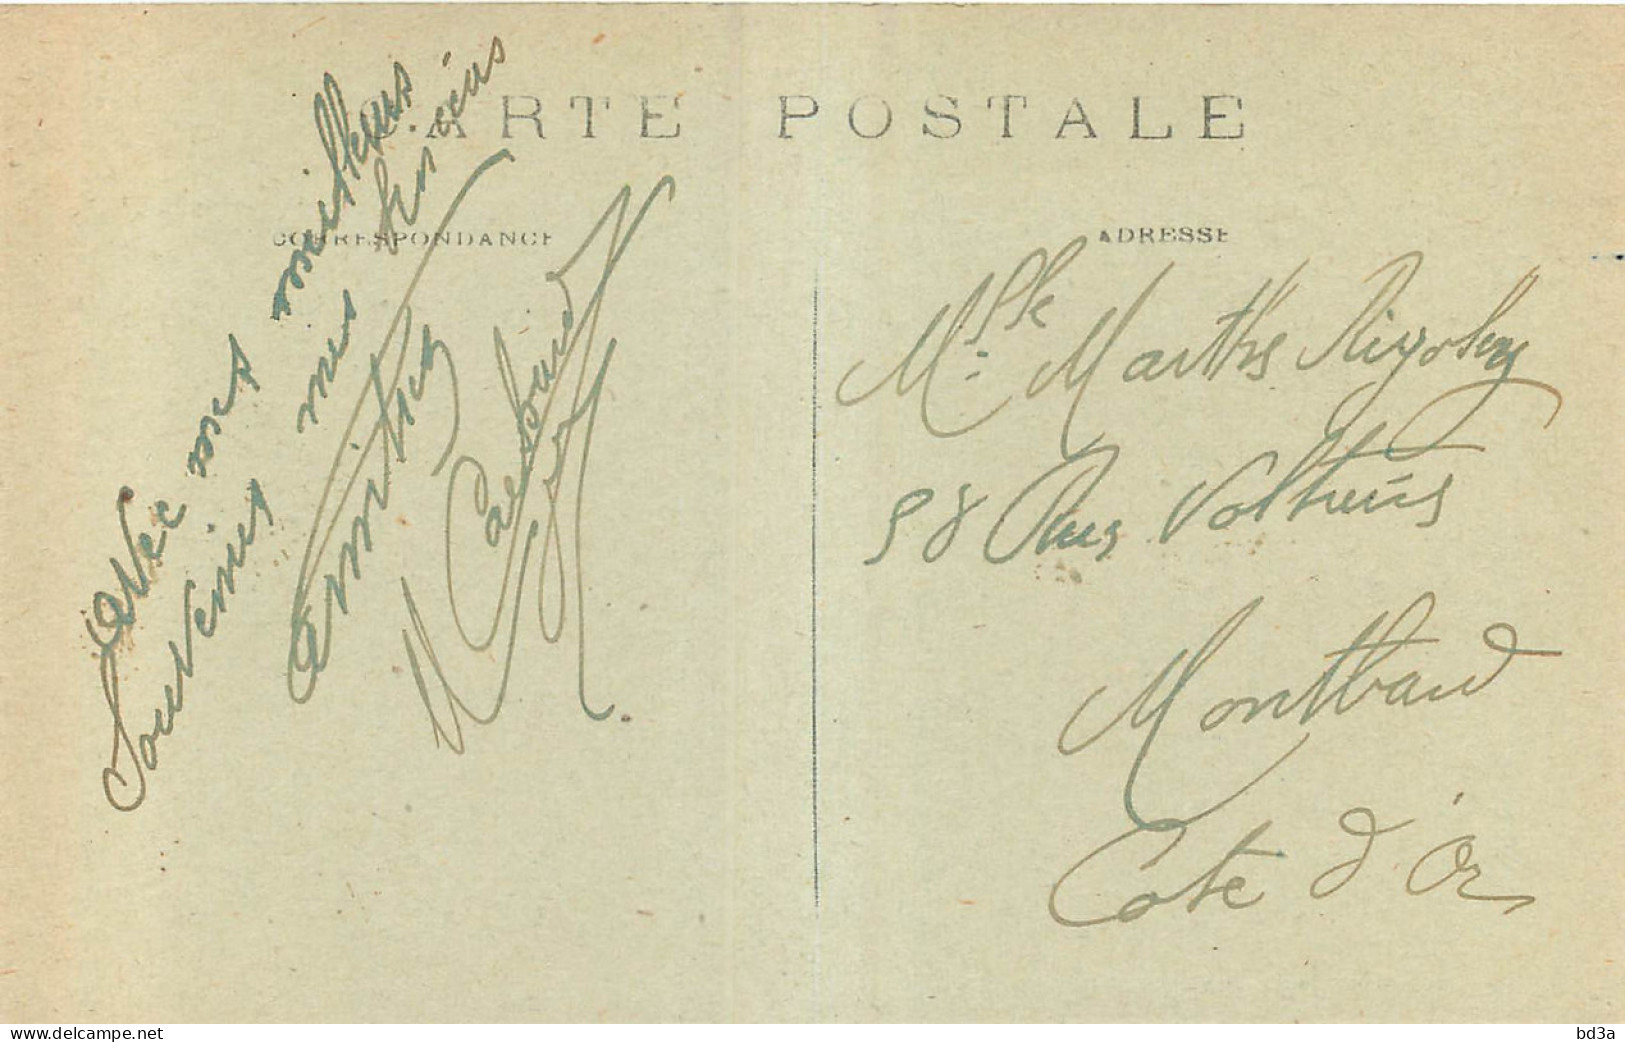 CARTE POSTALE
CORRESPONDANCE
ADRESSE
Avec mes meilleurs
Souvenirs mes sincères
amitiés
Mlle Marthe
58 Rue Voltaire
Montbard
Cote d'Or
www.delcampe.net
bd3a